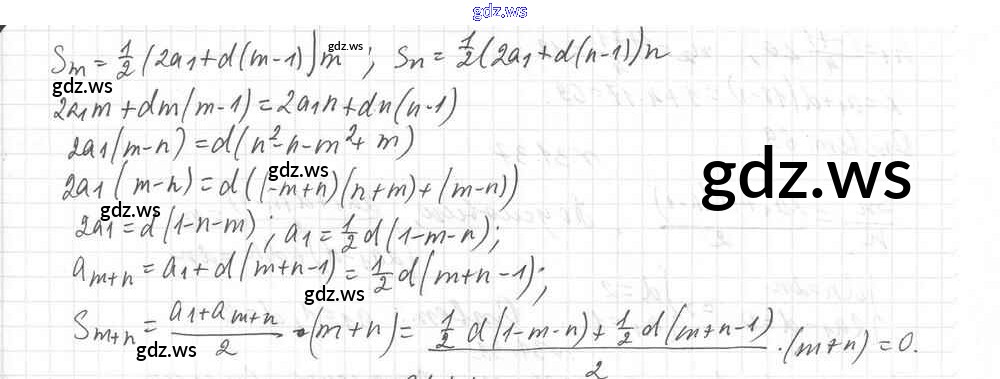 gdz.ws
Sm = 1/2 (2a1 + d(m-1))m ; Sn = 1/2 (2a1 + d(n-1))n
gdz.ws
gdz.ws
2a1m + dm(m-1) = 2a1n + dn(n-1)
2a1(m-n) = d(n²-n-m²+m)
gdz.ws
gdz.ws
2a1(m-n) = d((-m+n)(n+m)+(m-n))
gdz.ws
2a1 = d(1-n-m) ; a1 = 1/2 d(1-m-n);
am+n = a1 + d(m+n-1) = 1/2 d(m+n-1);
gdz.ws
Sm+n = a1 + am+n / 2 · (m+n) = 1/2 d(1-m-n) + 1/2 d(m+n-1) / 2 · (m+n) = 0.
gdz.ws